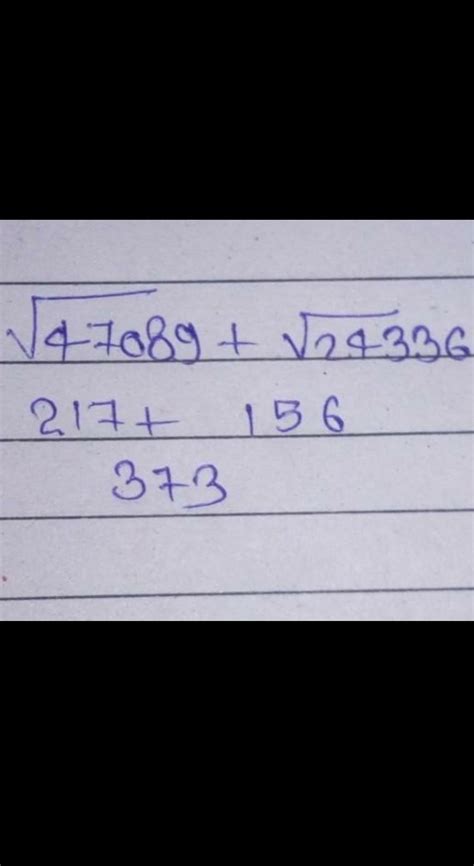 √47089 + √24336
217+ 156
373